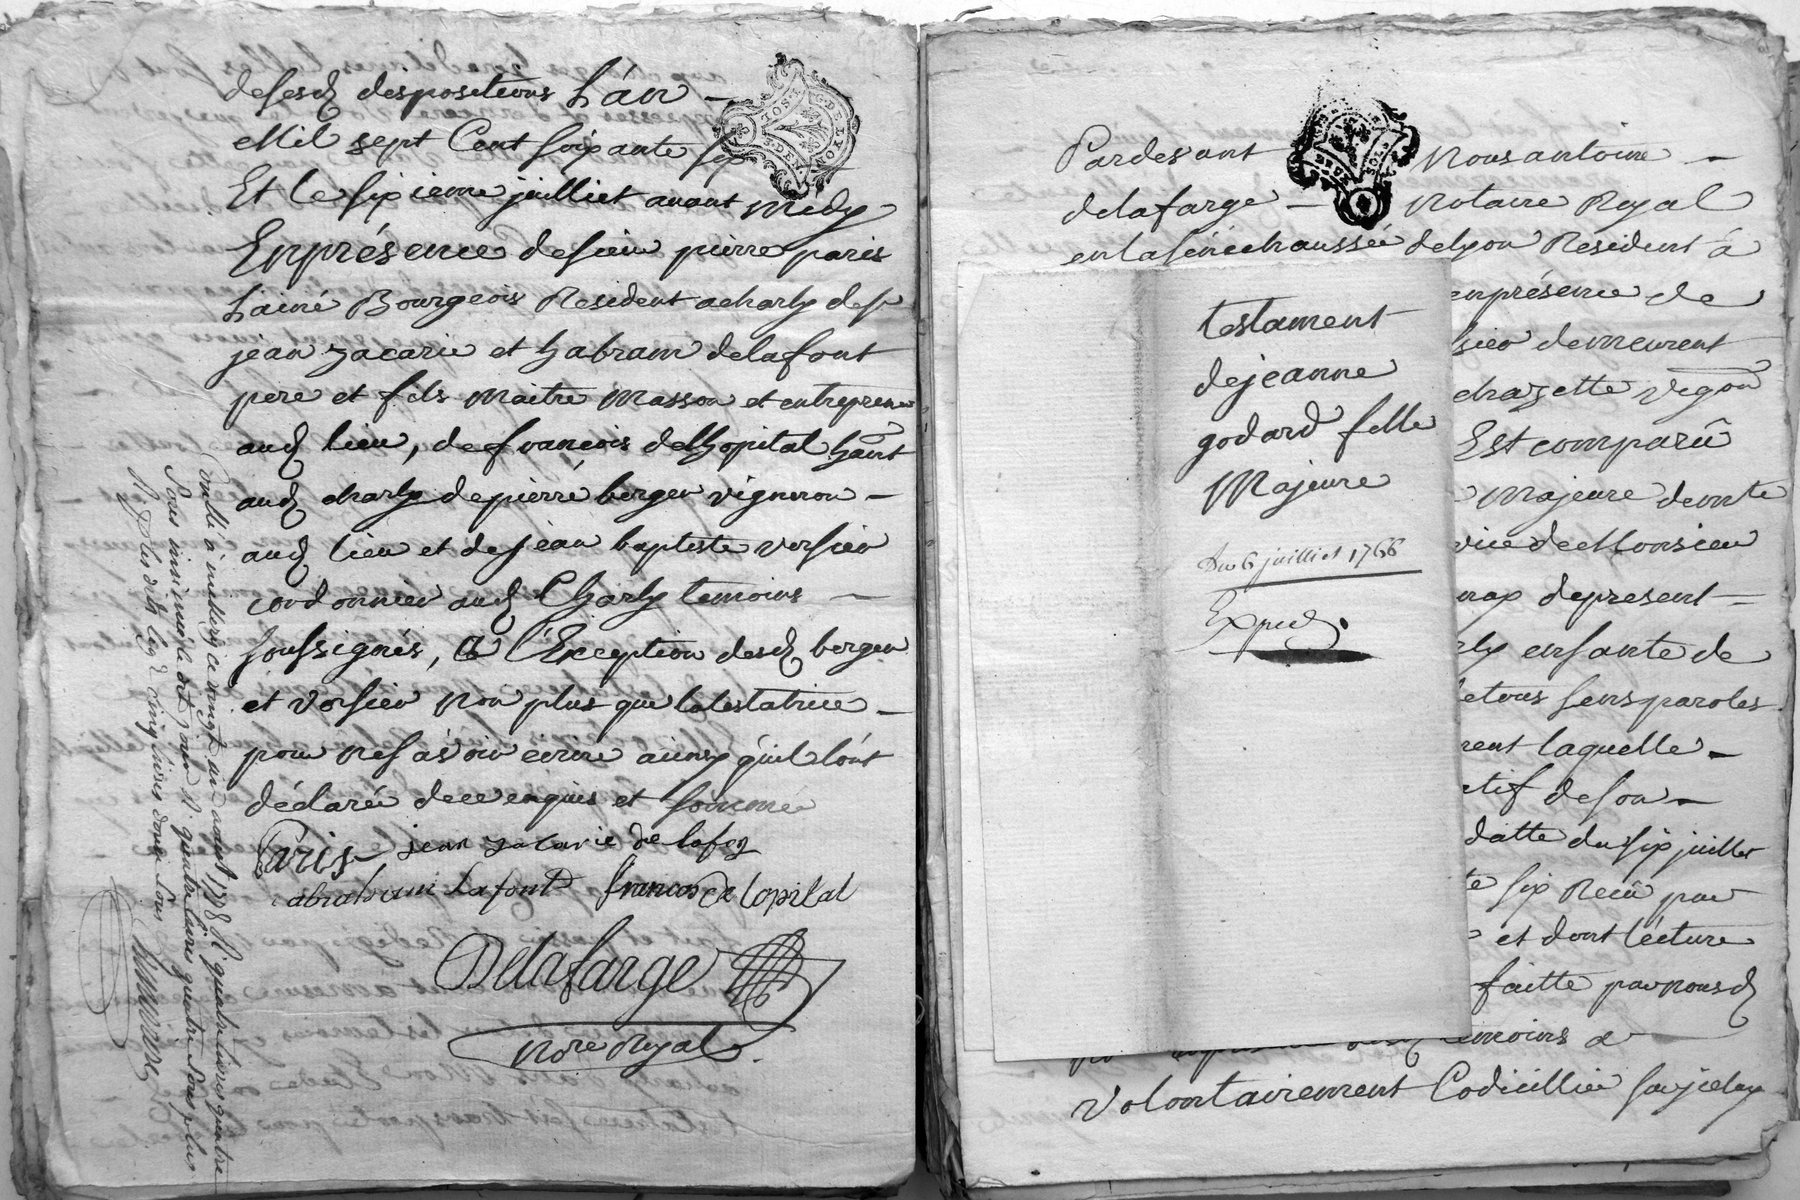 desesd dispositions L'án
Mil sept Cent soixante six
Et le sixieme juilliet avant Midy
En présence de sieur pierre paris
L'ainé Bourgeois Resident a charly de sr
jean zacarie et habram delafont
pere et fils Maitre Masson et entrepreneur
aud lieu, de francois delhopital habitant
aud charly de pierre berger vigneron
aud lieu et de jean baptiste versier
cordonnier aud Charly temoins
soussignés, a l'Exception desd berger
et versier Non plus que la testatrice
pour ne sávoir écrire ainsy qu'il l'ont
déclaré de ce enquis et sommé
Paris jean zacarie de lafon
abraham Lafont francois de lopital
Delafarge
Nore Royal
Conllé à millery ce vingt un aout 1778 R quatre livres quatre
sous insinué le dit jour R quatre livres quatre sous plus
R plus cinq livres douze sous
G. DE LYON
Pardevant Nous antoine
delafarge Notaire Royal
en la sénéchaussée de Lyon Resident à
en présence de
sier demeurent
chazette vigon
Est comparû
Majeure de vnte
vice de Monsieur
depresent
ly enfante de
et ous sens paroles
rent laquelle
ctif de son
datte du six juillet
te six Recû par
et dont lécture
faitte par nousd
temoins a
volontairement Codicillié
testament
de jeanne
godard fille
Majeure
Du 6 juilliet 1766
Exped.